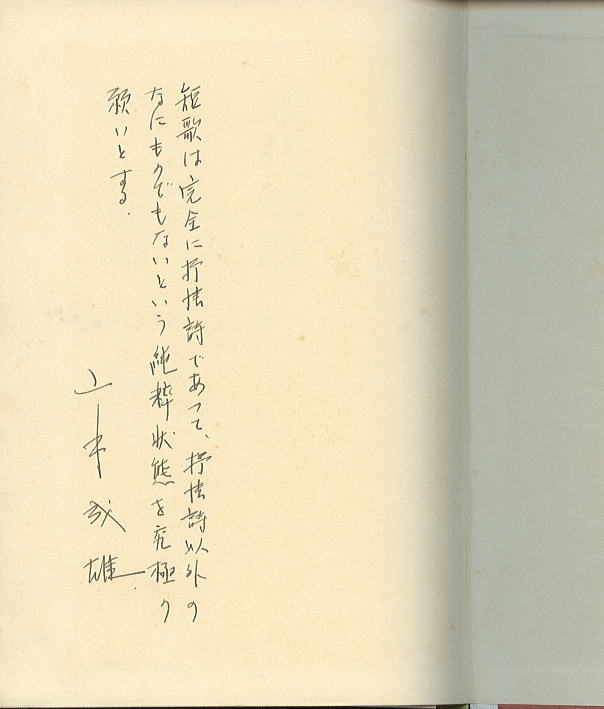 短歌は完全に抒情詩であって、抒情詩以外の
なにものでもないという純粋状態を究極の
願いとする.
上木 雄